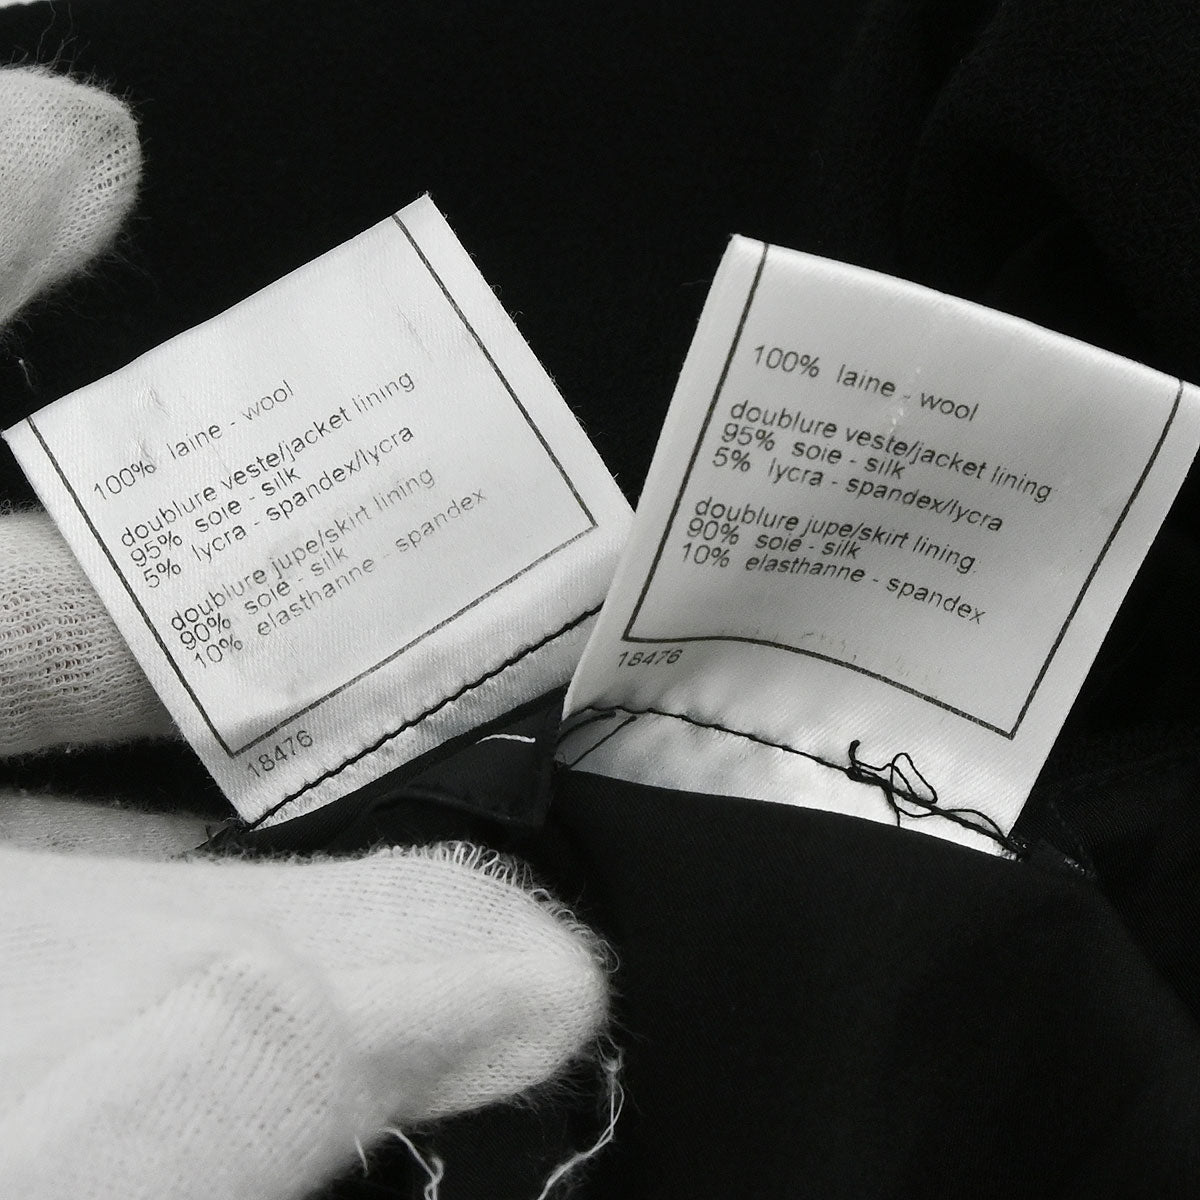 100% laine - wool
doublure veste/jacket lining
95% soie - silk
5% lycra - spandex/lycra
doublure jupe/skirt lining
90% soie - silk
10% elasthanne - spandex
18476
100% laine - wool
doublure veste/jacket lining
95% soie - silk
5% lycra - spandex/lycra
doublure jupe/skirt lining
90% soie - silk
10% elasthanne - spandex
18476